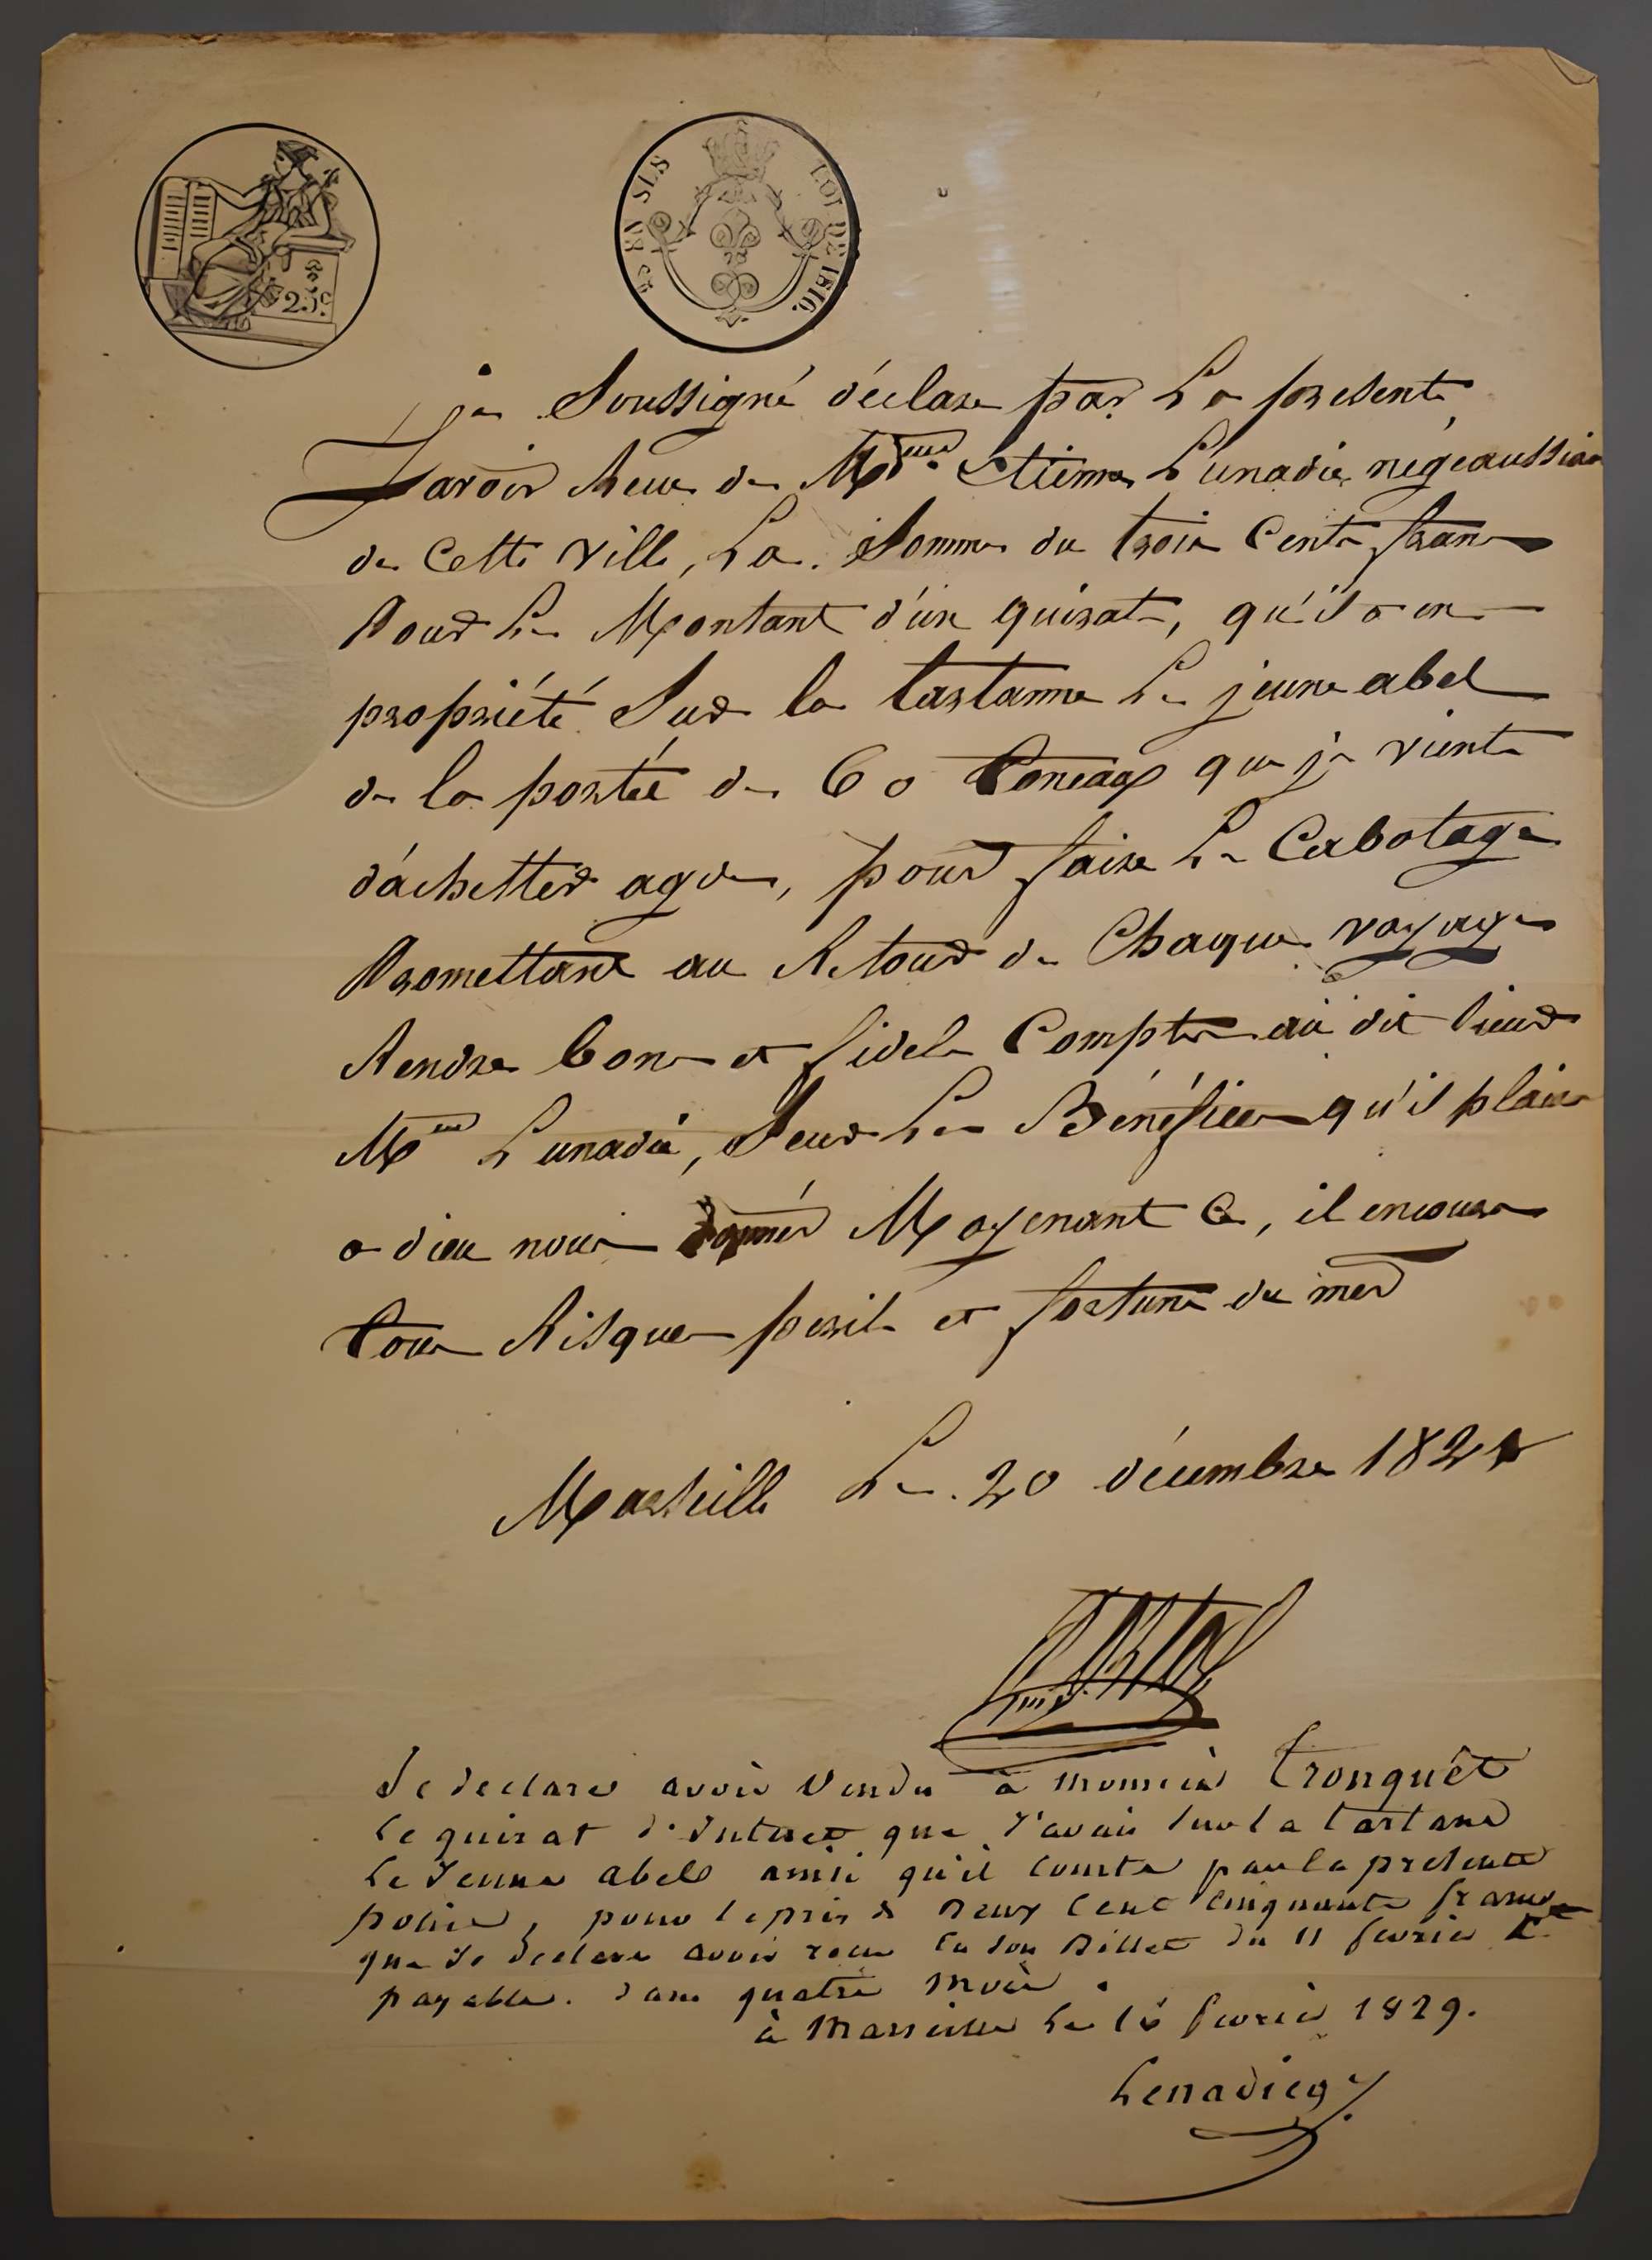 25c.
25 EN SUS
LOI DE 1816.
je Soussigné déclare par La presente
avoir Reçue de Mr. Etienne Lunadie, négeaussian
de Cette ville, La Somme de trois Cents fran
Pour Le Montant d'un quirat, qu'il a en
propriété Sur la tartanne Le jeune abel
de la portée de 60 toneaux que je vient
d'achetter agde, pour faire Le Cabotage
Promettant au Retour de Chaque voyage
Rendre bon et fidel Compte au dit Sieur
Mr Lunadié, Seur Les Bénéfices qu'il plaira
a dieu nous donner Moyenant Ce, il encoure
tous Risques perils et fortune de mer
Marseille Le 20 décembre 182
Je declare avoir Vendu à monsieur Tronquêt
Le quirat d'Interet que J'avais sur la tartane
Le Jeune abel ainsi qu'il conste par la presente
police, pour le prix de Deux Cent Cinquante francs
que Je declare avoir recu En son Billet du 11 fevrier
payable dans quatre mois.
à Marseille Le 16 fevrier 1829.